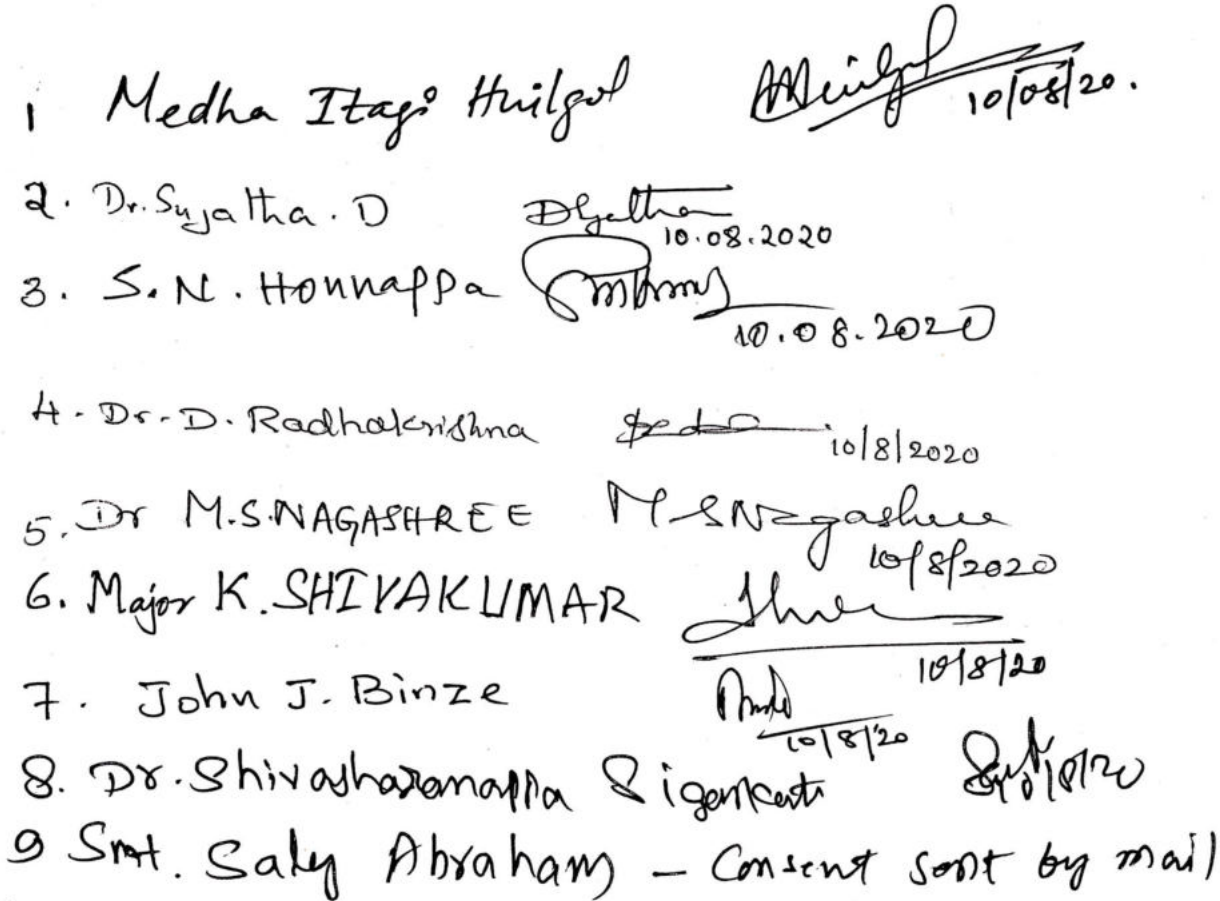 1 Medha Itagi Huilgol 10/08/20.
2. Dr. Sujatha. D
10.08.2020
3. S. N. Honnappa
10.08.2020
4. Dr. D. Radhakrishna 10/8/2020
5. Dr M.S.NAGASHREE MSNagashree
10/8/2020
6. Major K. SHIVAKUMAR
10/8/20
7. John J. Binze
10/8/20
8. Dr. Shivasharanappa
9 Smt. Saly Abraham – Consent sent by mail